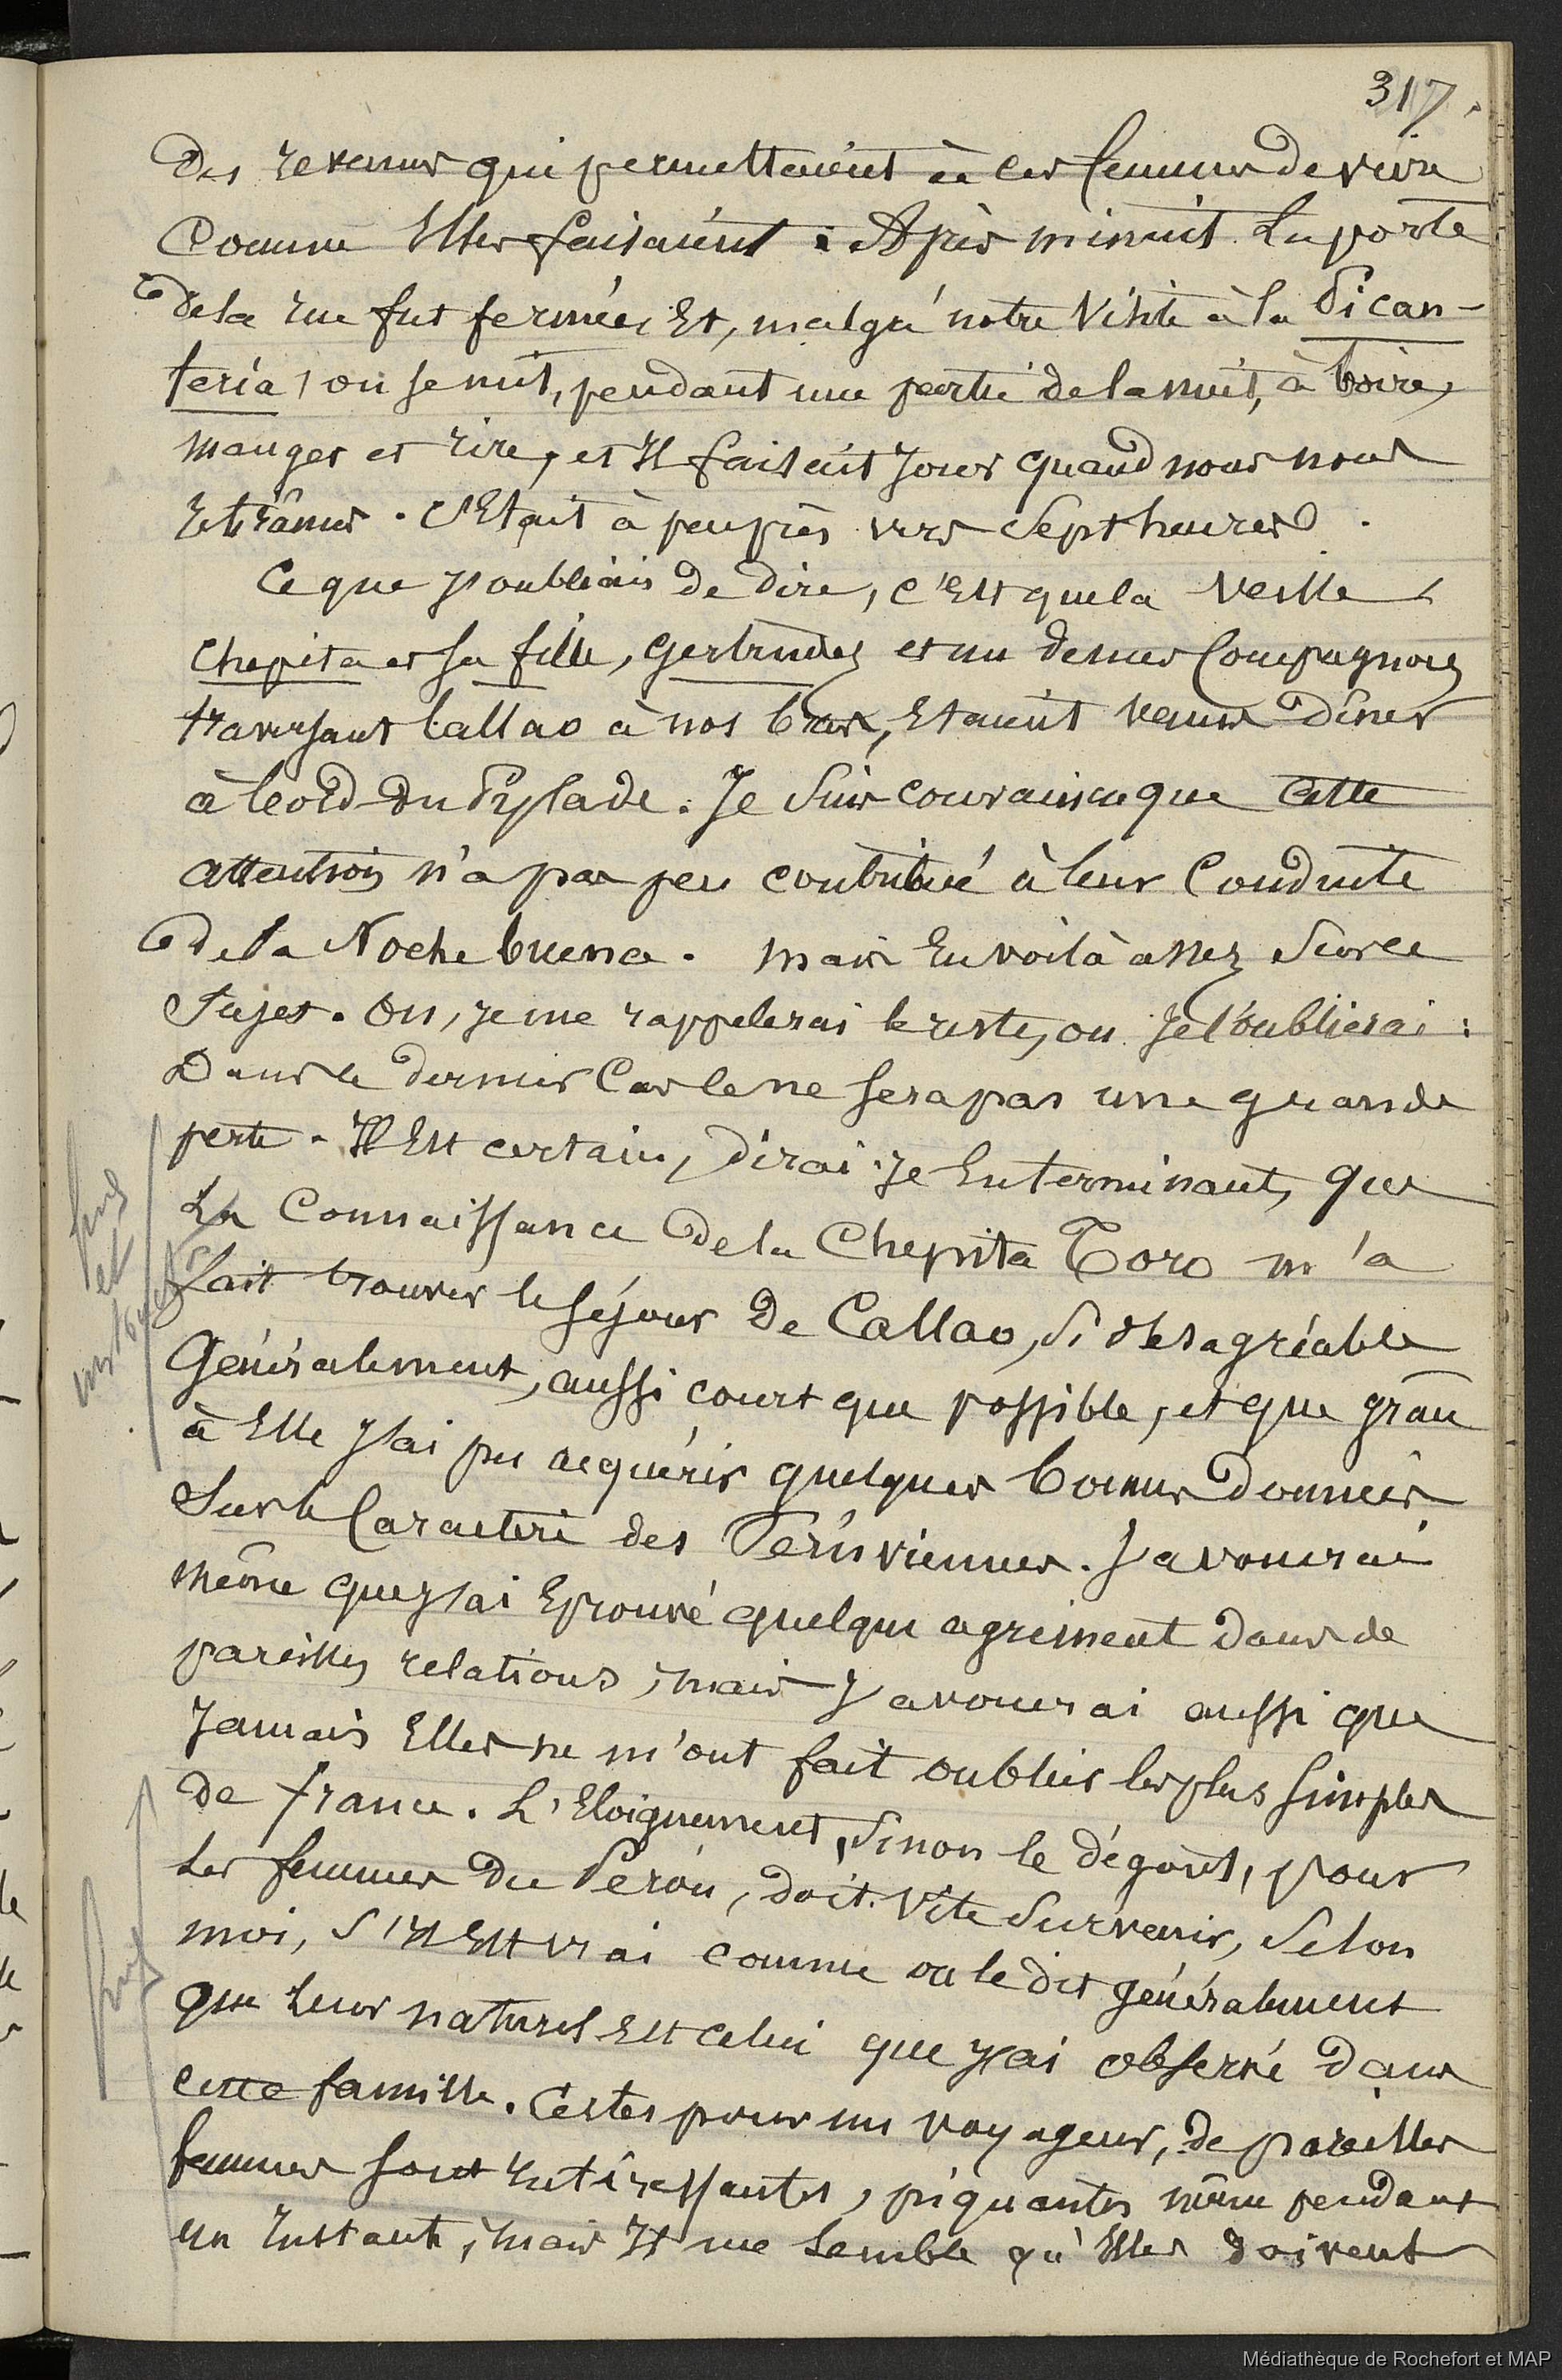 317.
Des revenus qui permettaient à ces femmes de vivre
Comme Elles faisaient. Après minuit la porte
de la rue fut fermée, Et, malgré notre Visite à la Pican-
teria, on se mit, pendant une partie de la nuit, à boire,
manger et rire, et Il faisait Jour quand nous nous
retirâmes. C'Etait à peu près vers Sept heures.
Ce que J'oubliais de dire, c'Est que la veille
Chepita et sa fille, Gertrudes et un de nos Compagnons
traversant Callao à nos bras, Etaient venus dîner
à bord du Pylade. Je Suis convaincu que Cette
attention n'a pas peu contribué à leur Conduite
de la Noche buena. Mais En voilà assez Sur ce
Sujet. Ou, Je me rappelerai le reste, ou Je l'oublierai :
Dans le dernier Cas Ce ne sera pas une grande
perte. Il Est certain, dirai-Je En terminant, que
La Connaissance de la Chepita Toro m'a
fait trouver le séjour de Callao, Si désagréable
Généralement, aussi court que possible, et que grâce
à Elle J'ai pu acquérir quelques bonnes Données
Sur le Caractère des Péruviennes. J'avouerai
même que J'ai Eprouvé quelque agrément dans de
pareilles relations, mais J'avouerai aussi que
Jamais Elles ne m'ont fait oublier les plus Simples
de france. L'Eloignement, Sinon le dégoût, pour
Les femmes du Pérou, doit Vite Survenir, Selon
moi, S'Il Est vrai comme on le dit généralement
que Leur naturel Est Celui que J'ai observé dans
Cette famille. Certes pour un voyageur, de pareilles
femmes sont Intéressantes, piquantes même pendant
un Instant, mais Il me Semble qu'Elles doivent
et
Médiathèque de Rochefort et MAP